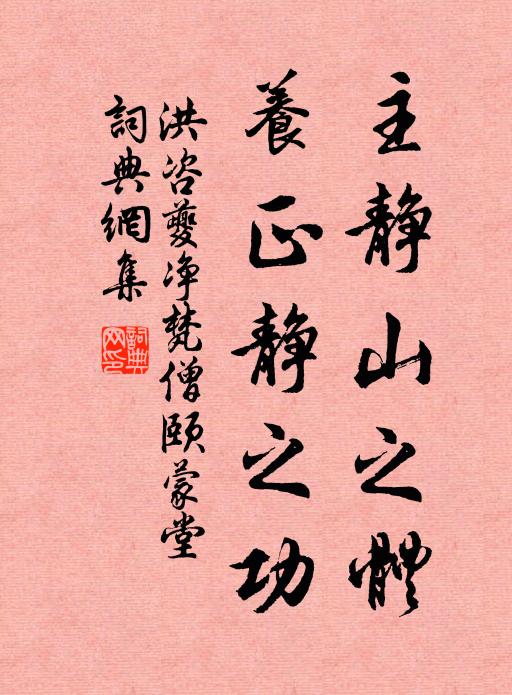 主静山之體
養正静之功
洪咨夔净梵僧頤蒙堂
詞典網集
詞典網印